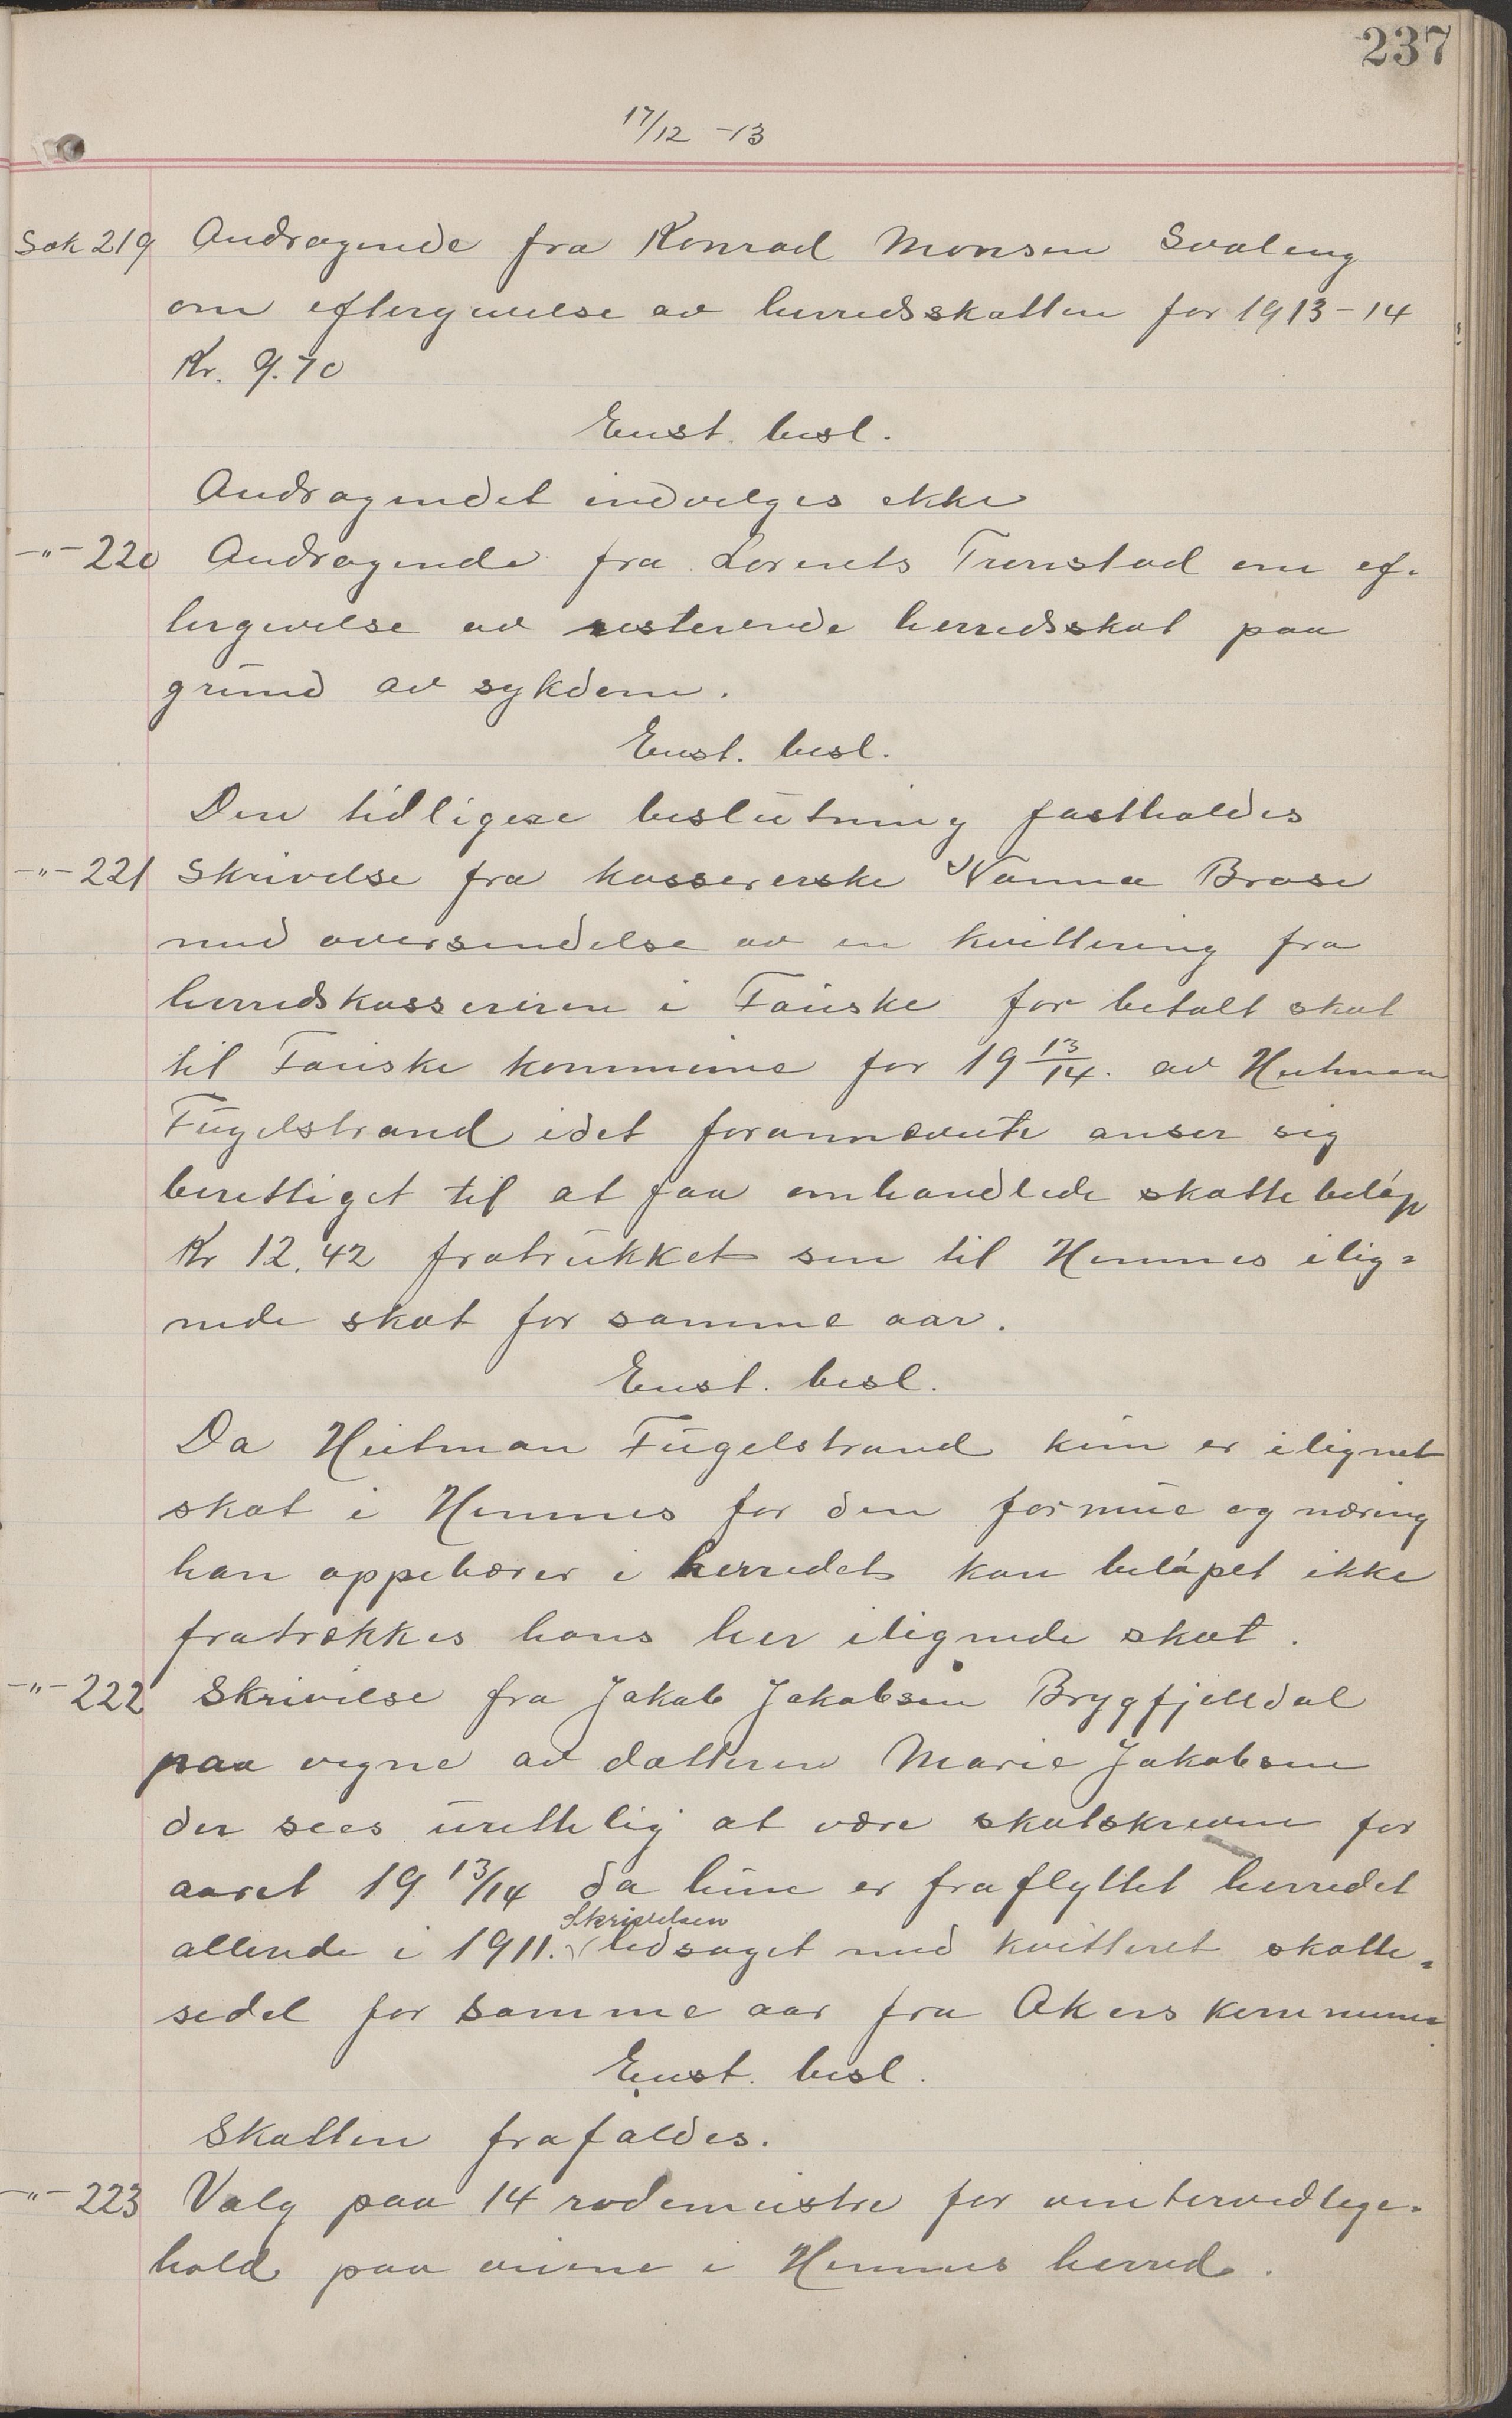 237
17/12 -13
Sak 219 Andragende fra Konrad Monsen Svaleng
om eftergivelse av herredsskatten for 1913-14
Kr. 9.70
Enst. besl.
Andragendet indvilges ikke
-"- 220 Andragende fra Lorents Tronstad om ef-
tergivelse av resterende herredsskat paa
grund av sykdom.
Enst. besl.
Den tidligere beslutning fastholdes
-"- 221 Skrivelse fra kassererske Nanna Brose
med oversendelse av en kvittering fra
herredskassereren i Fauske for betalt skat
til Fauske kommune for 19 13/14. av Heitman
Fugelstrand idet forannevnte anser sig
berettiget til at faa omhandlede skattebeløp
Kr 12.42 fratrukket sin til Hemnes ilig=
nede skat for samme aar.
Enst. besl.
Da Heitman Fugelstrand kun er ilignet
skat i Hemnes for den formue og næring
han oppebærer i herredet kan beløpet ikke
fratrækkes hans her ilignede skat.
-"- 222 Skrivelse fra Jakob Jakobsen Brygfjelldal
paa vegne av datteren Marie Jakobsen
der sees urettelig at være skatskreven for
aaret 19 13/14 da hun er fraflyttet herredet
Skrivelsen
allerede i 1911. ledsaget med kvitteret skatte=
sedel for samme aar fra Akers kommune.
Enst. besl.
Skatten frafaldes.
-"- 223 Valg paa 14 rodemestre for vintervedlige=
hold paa veiene i Hemnes herred.